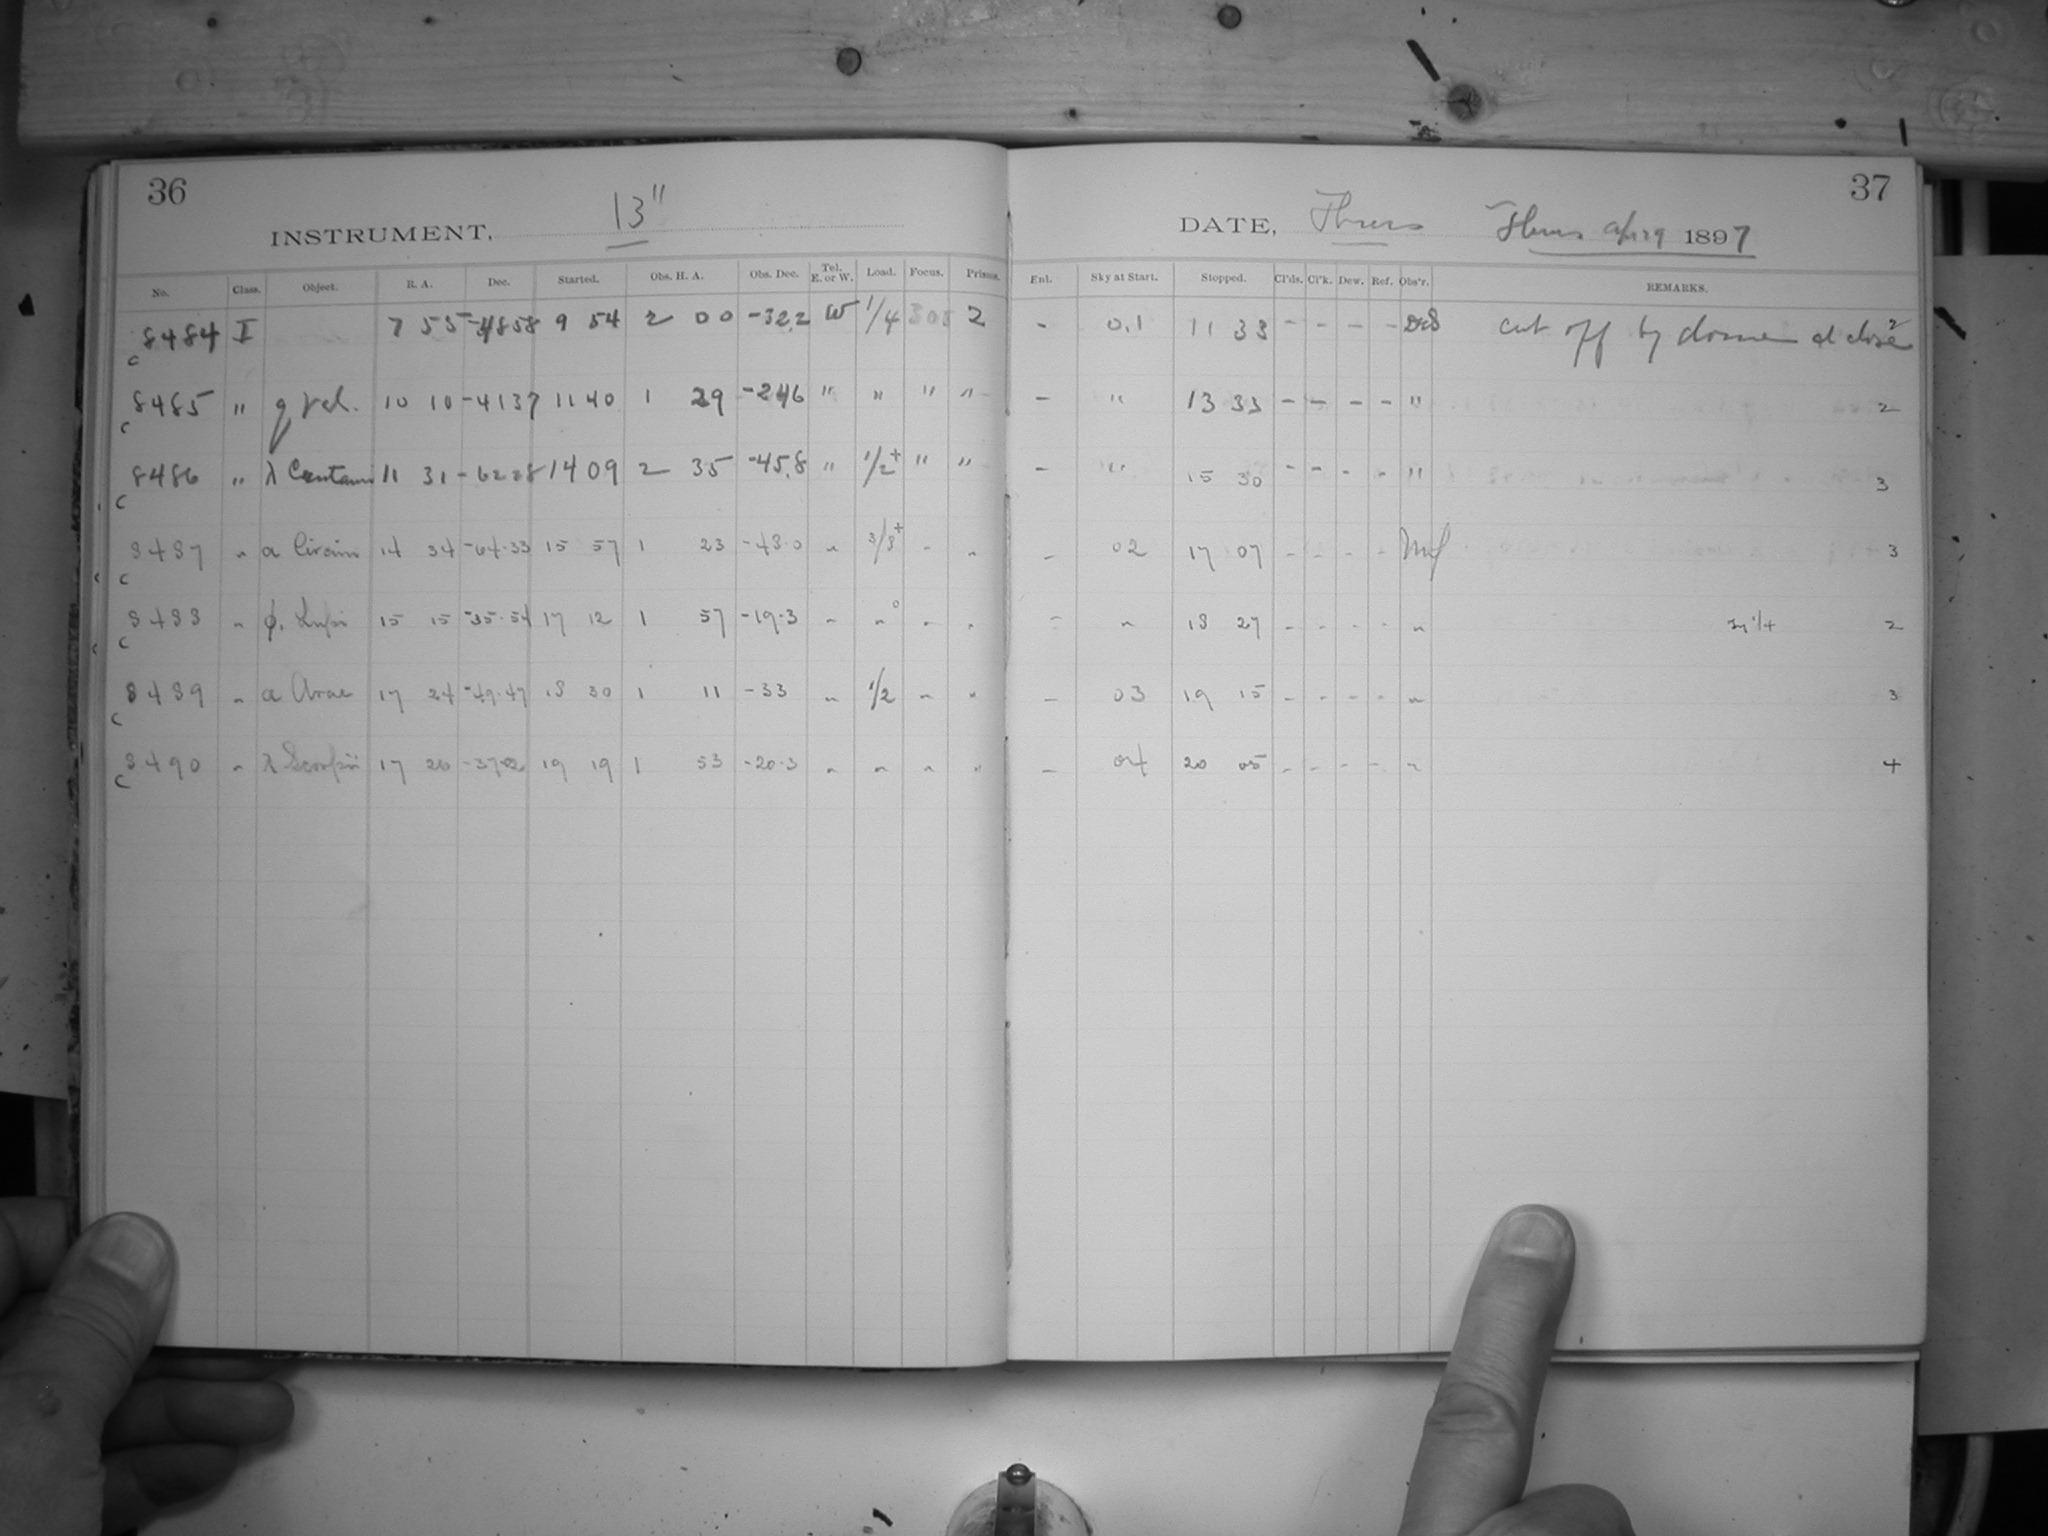 36
INSTRUMENT, 13"
No. Class. Object. R. A. Dec. Started. Obs. H. A. Obs. Dec. Tel. E. or W. Load. Focus. Prisms.
c 8484 I 7 55 -4858 9 54 2 00 -32.2 W 1/4 305 2
c 8485 " q Vel. 10 10 -4137 11 40 1 29 -24.6 " " " "
c 8486 " λ Centauri 11 31 -6228 14 09 2 35 -45.8 " 1/2+ " "
c 8487 " α Circini 14 34 -64.33 15 57 1 23 -48.0 " 3/8+ " "
c 8488 " φ, Lupi 15 15 -35.54 17 12 1 57 -19.3 " " " "
c 8489 " α Arae 17 24 -49.47 18 30 1 11 -33 " 1/2 " "
c 8490 " λ Scorpii 17 26 -37.02 19 19 1 53 -20.3 " " " "
37
DATE, Thurs Thurs Apr 29 1897
Enl. Sky at Start. Stopped. Cl'ds. Cl'k. Dew. Ref. Obs'r. REMARKS.
- 0.1 11 33 - - - - cut off by dome at close 2
- " 13 33 - - - - " 2
- " 15 30 - - - - " 3
- 02 17 07 - - - - 3
- " 18 27 - - - - " 2
- 03 19 15 - - - - " 3
- 04 20 05 - - - - " 4